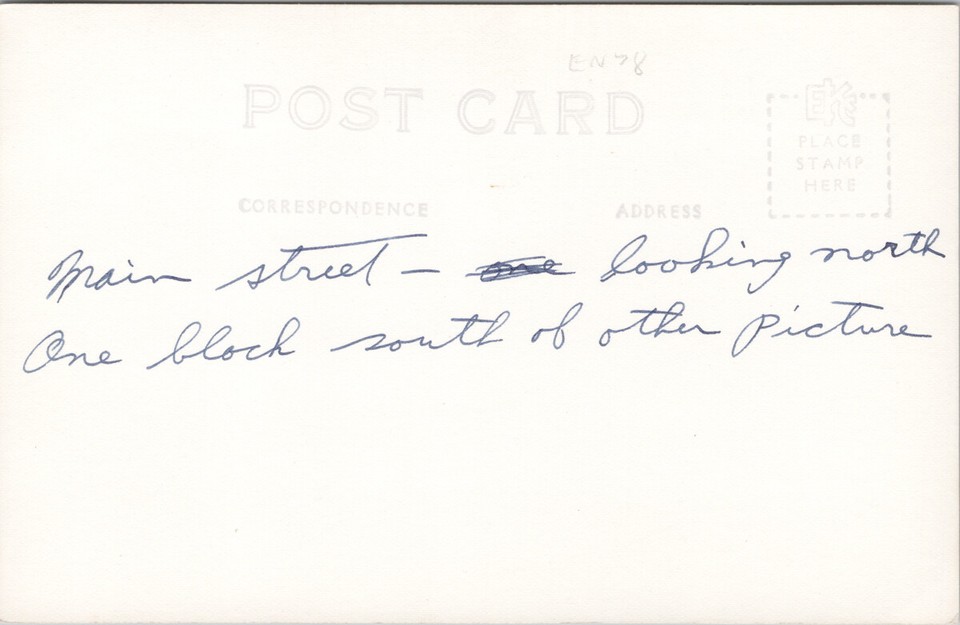 EN78
POST CARD
EKC
PLACE
STAMP
HERE
CORRESPONDENCE
ADDRESS
Main street — one looking north
One block south of other picture